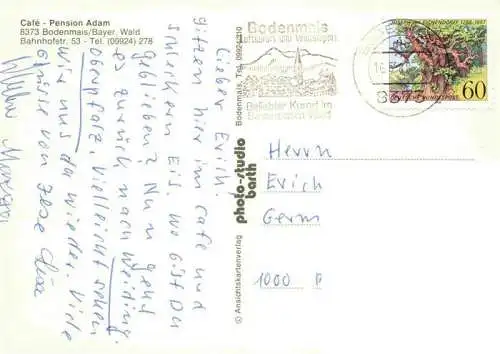 Café - Pension Adam
8373 Bodenmais/Bayer. Wald
Bahnhofstr. 53 - Tel. (09924) 278
Lieber Erich,
sitzen hier im Cafe und
schleckern Eis. Wo bist Du
geblieben? Nun geht
es zurück nach Weiding,
Oberpfalz, vielleicht sehen
wir uns da wieder. Viele
Grüsse von
Bodenmais
Luftkurort und Wintersport
Beliebter Kurort im
Bayerischen Wald
Bodenmais, Tel. (09924)
photo-studio
barth
© Ansichtskartenverlag
1788
DEUTSCHE BUNDESPOST
60
Herrn
Erich
Germ
1000